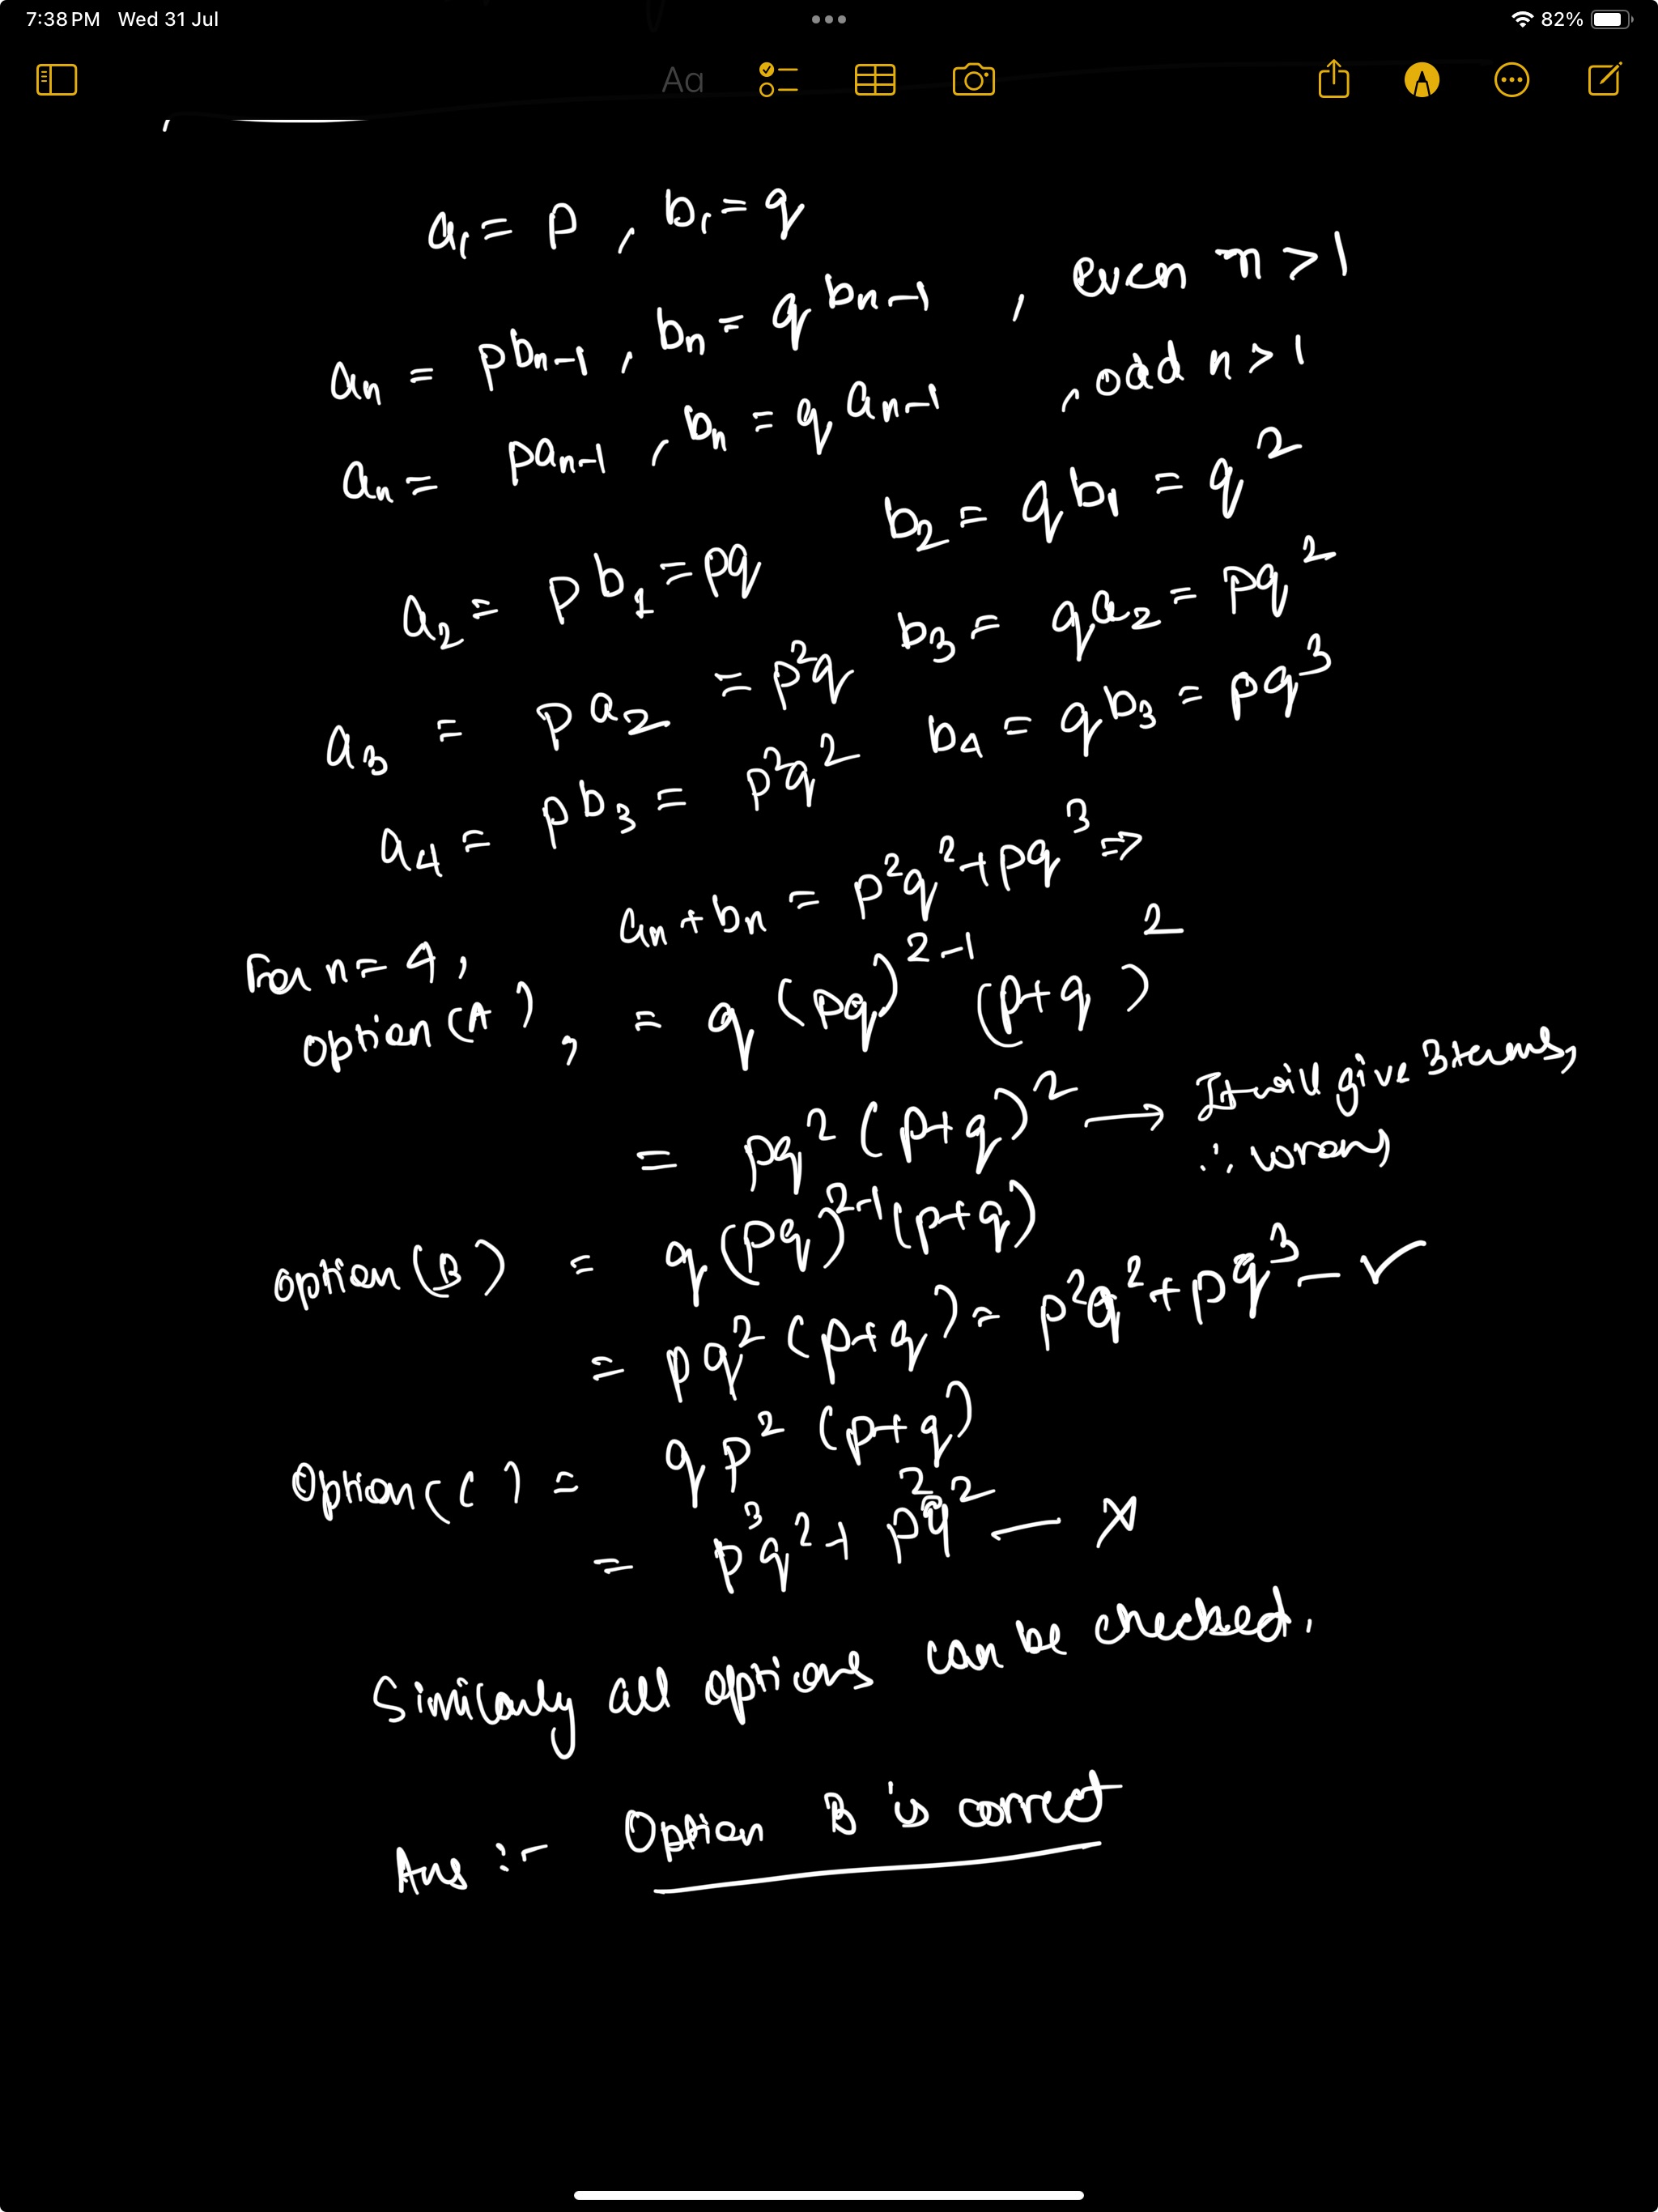 7:38 PM Wed 31 Jul 82%
Aa
a₁ = p , b₁ = q
aₙ = pbₙ₋₁ , bₙ = qbₙ₋₁ , even n > 1
aₙ = paₙ₋₁ , bₙ = qaₙ₋₁ , odd n > 1
a₂ = pb₁ = pq b₂ = qb₁ = q²
a₃ = pa₂ = p²q b₃ = qa₂ = pq²
a₄ = pb₃ = p²q² b₄ = qb₃ = pq³
For n = 4, aₙ + bₙ = p²q² + pq³ ⇒
Option (A), = q (pq)²⁻¹ (p+q)²
= pq² (p+q)² → It will give 3 terms,
∴ wrong
Option (B) = q (pq)²⁻¹ (p+q)
= pq² (p+q) = p²q² + pq³ — ✓
Option (C) = qp² (p+q)
= p³q² + p²q² — ×
Similarly all options can be checked.
Ans :- Option B is correct